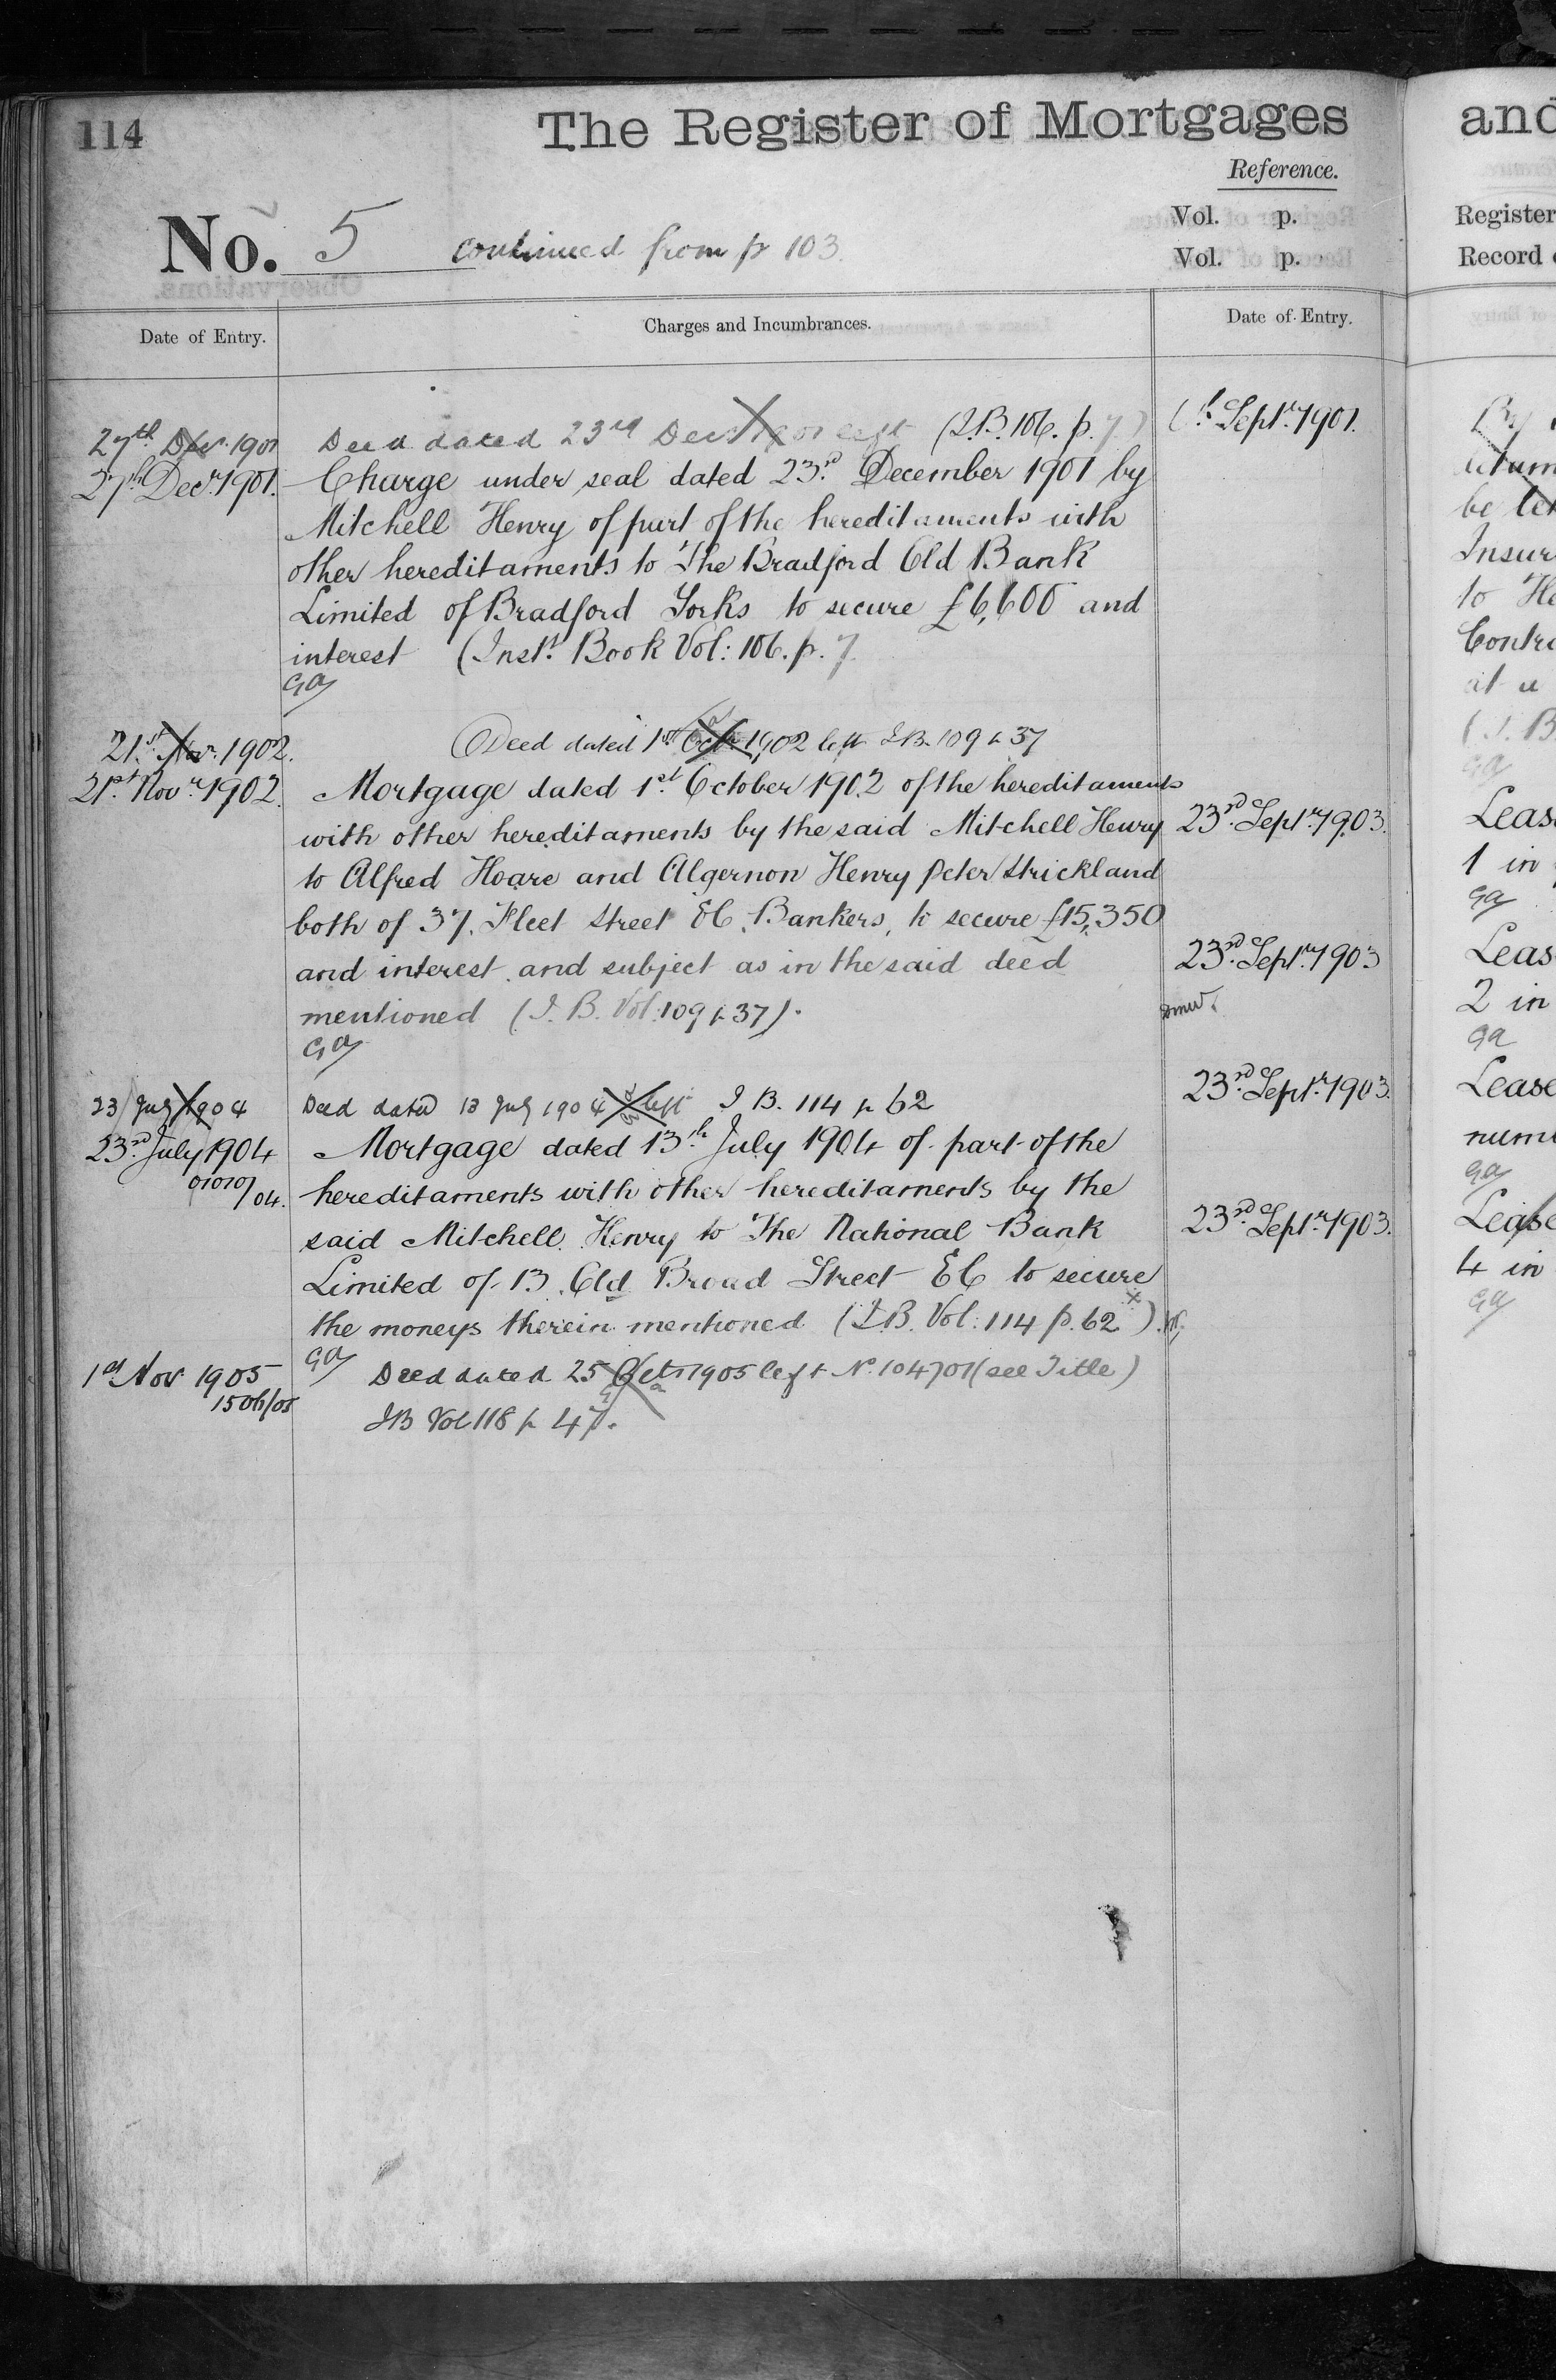 114
The Register of Mortgages
Reference.
Vol. p.
Vol. p.
No. 5 continued from p 103.
Date of Entry.
Charges and Incumbrances.
Date of Entry.
27th Decr 1901 Deed dated 23rd Decr 1901 left (I.B. 106. p. 7.)
27th Decr 1901. Charge under seal dated 23rd December 1901 by
Mitchell Henry of part of the hereditaments with
other hereditaments to The Bradford Old Bank
Limited of Bradford Yorks to secure £6,600 and
interest (Inst. Book Vol: 106. p. 7.
GA
21st Nov. 1902. Deed dated 1st Oct 1902 left I.B. 109 p 37
21st Novr 1902. Mortgage dated 1st October 1902 of the hereditaments
with other hereditaments by the said Mitchell Henry
to Alfred Hoare and Algernon Henry Peter Strickland
both of 37. Fleet Street EC. Bankers, to secure £15,350
and interest and subject as in the said deed
mentioned (I. B. Vol: 109 p 37).
GA
23 July 1904 Deed dated 13 July 1904 left I B. 114 p 62
23rd July 1904 Mortgage dated 13th July 1904 of part of the
hereditaments with other hereditaments by the
01010/04.
said Mitchell Henry to The National Bank
Limited of 13. Old Broad Street EC to secure
the moneys therein mentioned (I.B. Vol: 114 p. 62 x).
GA
1st Nov 1905 Deed dated 25 Oct 1905 left No. 104701 (see Title)
1506/05
IB Vol 118 p 47.
1st Septr 1901.
23rd Septr 1903.
23rd Septr 1903
23rd Septr 1903.
23rd Septr 1903.
and
Register
Record
By
be let
Insur
to He
Contra
at a
(I. B
GA
Lease
1 in
GA
Lease
2 in
GA
Lease
num
GA
Lease
4 in
GA